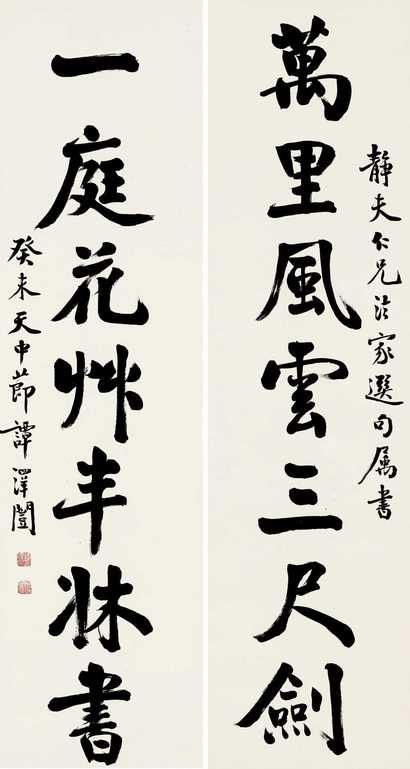 靜夫仁兄法家選句属書
萬里風雲三尺劍
一庭花艸半牀書
癸未天中節譚澤闓